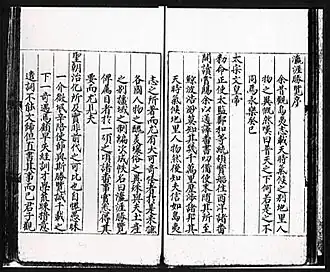 瀛涯勝覽序
余昔觀島夷志載天時氣候之別地里人
物之異慨然嘆曰普天之下何若是之不
同焉永樂癸巳
太宗文皇帝
勑命正使太監鄭和等統領寶船往西洋諸番
開讀賞賜余以通譯番書備使末隨其所至
天時氣候地里人物然後知信如島夷
志之所著而尤有大可奇怪者焉採
各國人物之醜美壤俗之異同與夫土產
之別疆域之制編次成帙名曰瀛涯勝覽
俾屬目者於一顧之頃諸番事實悉得其
要而尤見夫
聖朝治化所及實非前代之可比也自愧愚昧
一介微氓幸陪使節與斯勝覽誠千載之
下一可遇焉顧早失經訓于學措意
遣詞不能文飾但直書其事而已君子觀